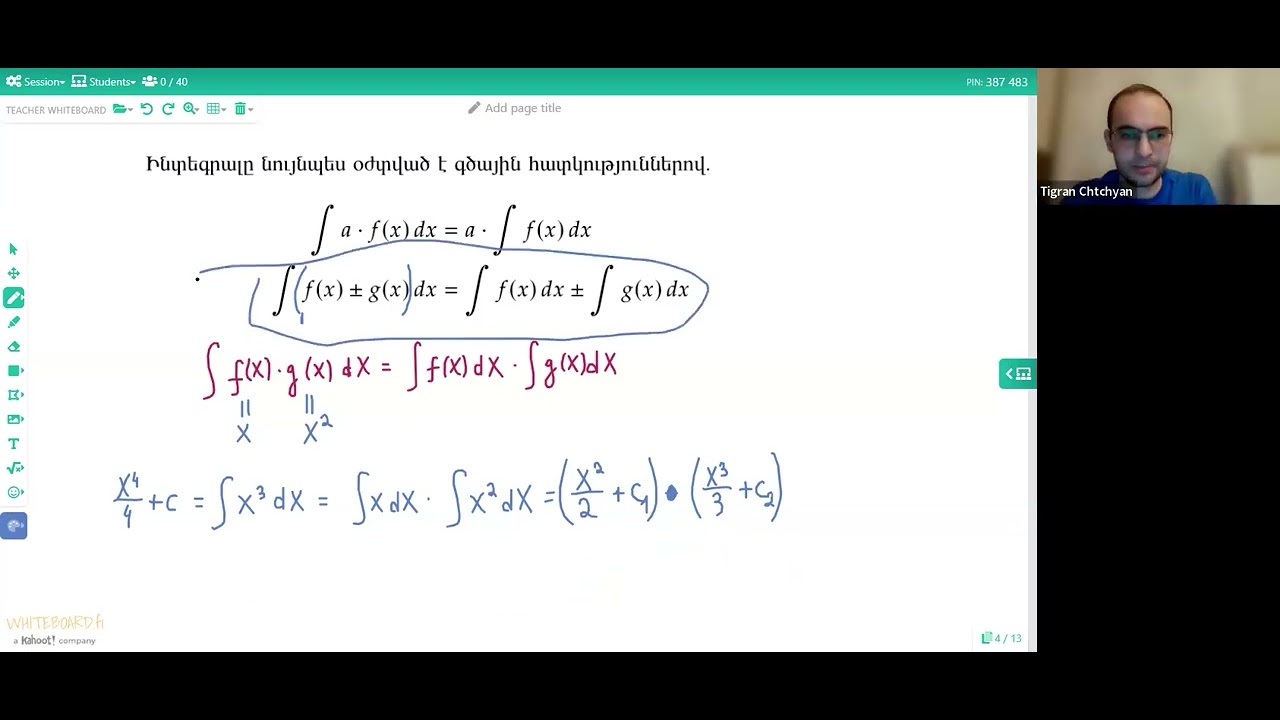 Session Students 0 / 40 PIN: 387 483
TEACHER WHITEBOARD Add page title
Ինտեգրալը նույնպես օժտված է գծային հատկություններով.
∫ a · f(x) dx = a · ∫ f(x) dx
∫ (f(x) ± g(x)) dx = ∫ f(x) dx ± ∫ g(x) dx
∫ f(x) · g(x) dx = ∫ f(x) dx · ∫ g(x) dx
|| ||
x x²
x⁴/4 + c = ∫ x³ dx = ∫ x dx · ∫ x² dx = (x²/2 + c₁) • (x³/3 + c₂)
WHITEBOARD.fi
a Kahoot! company
4 / 13
Tigran Chtchyan